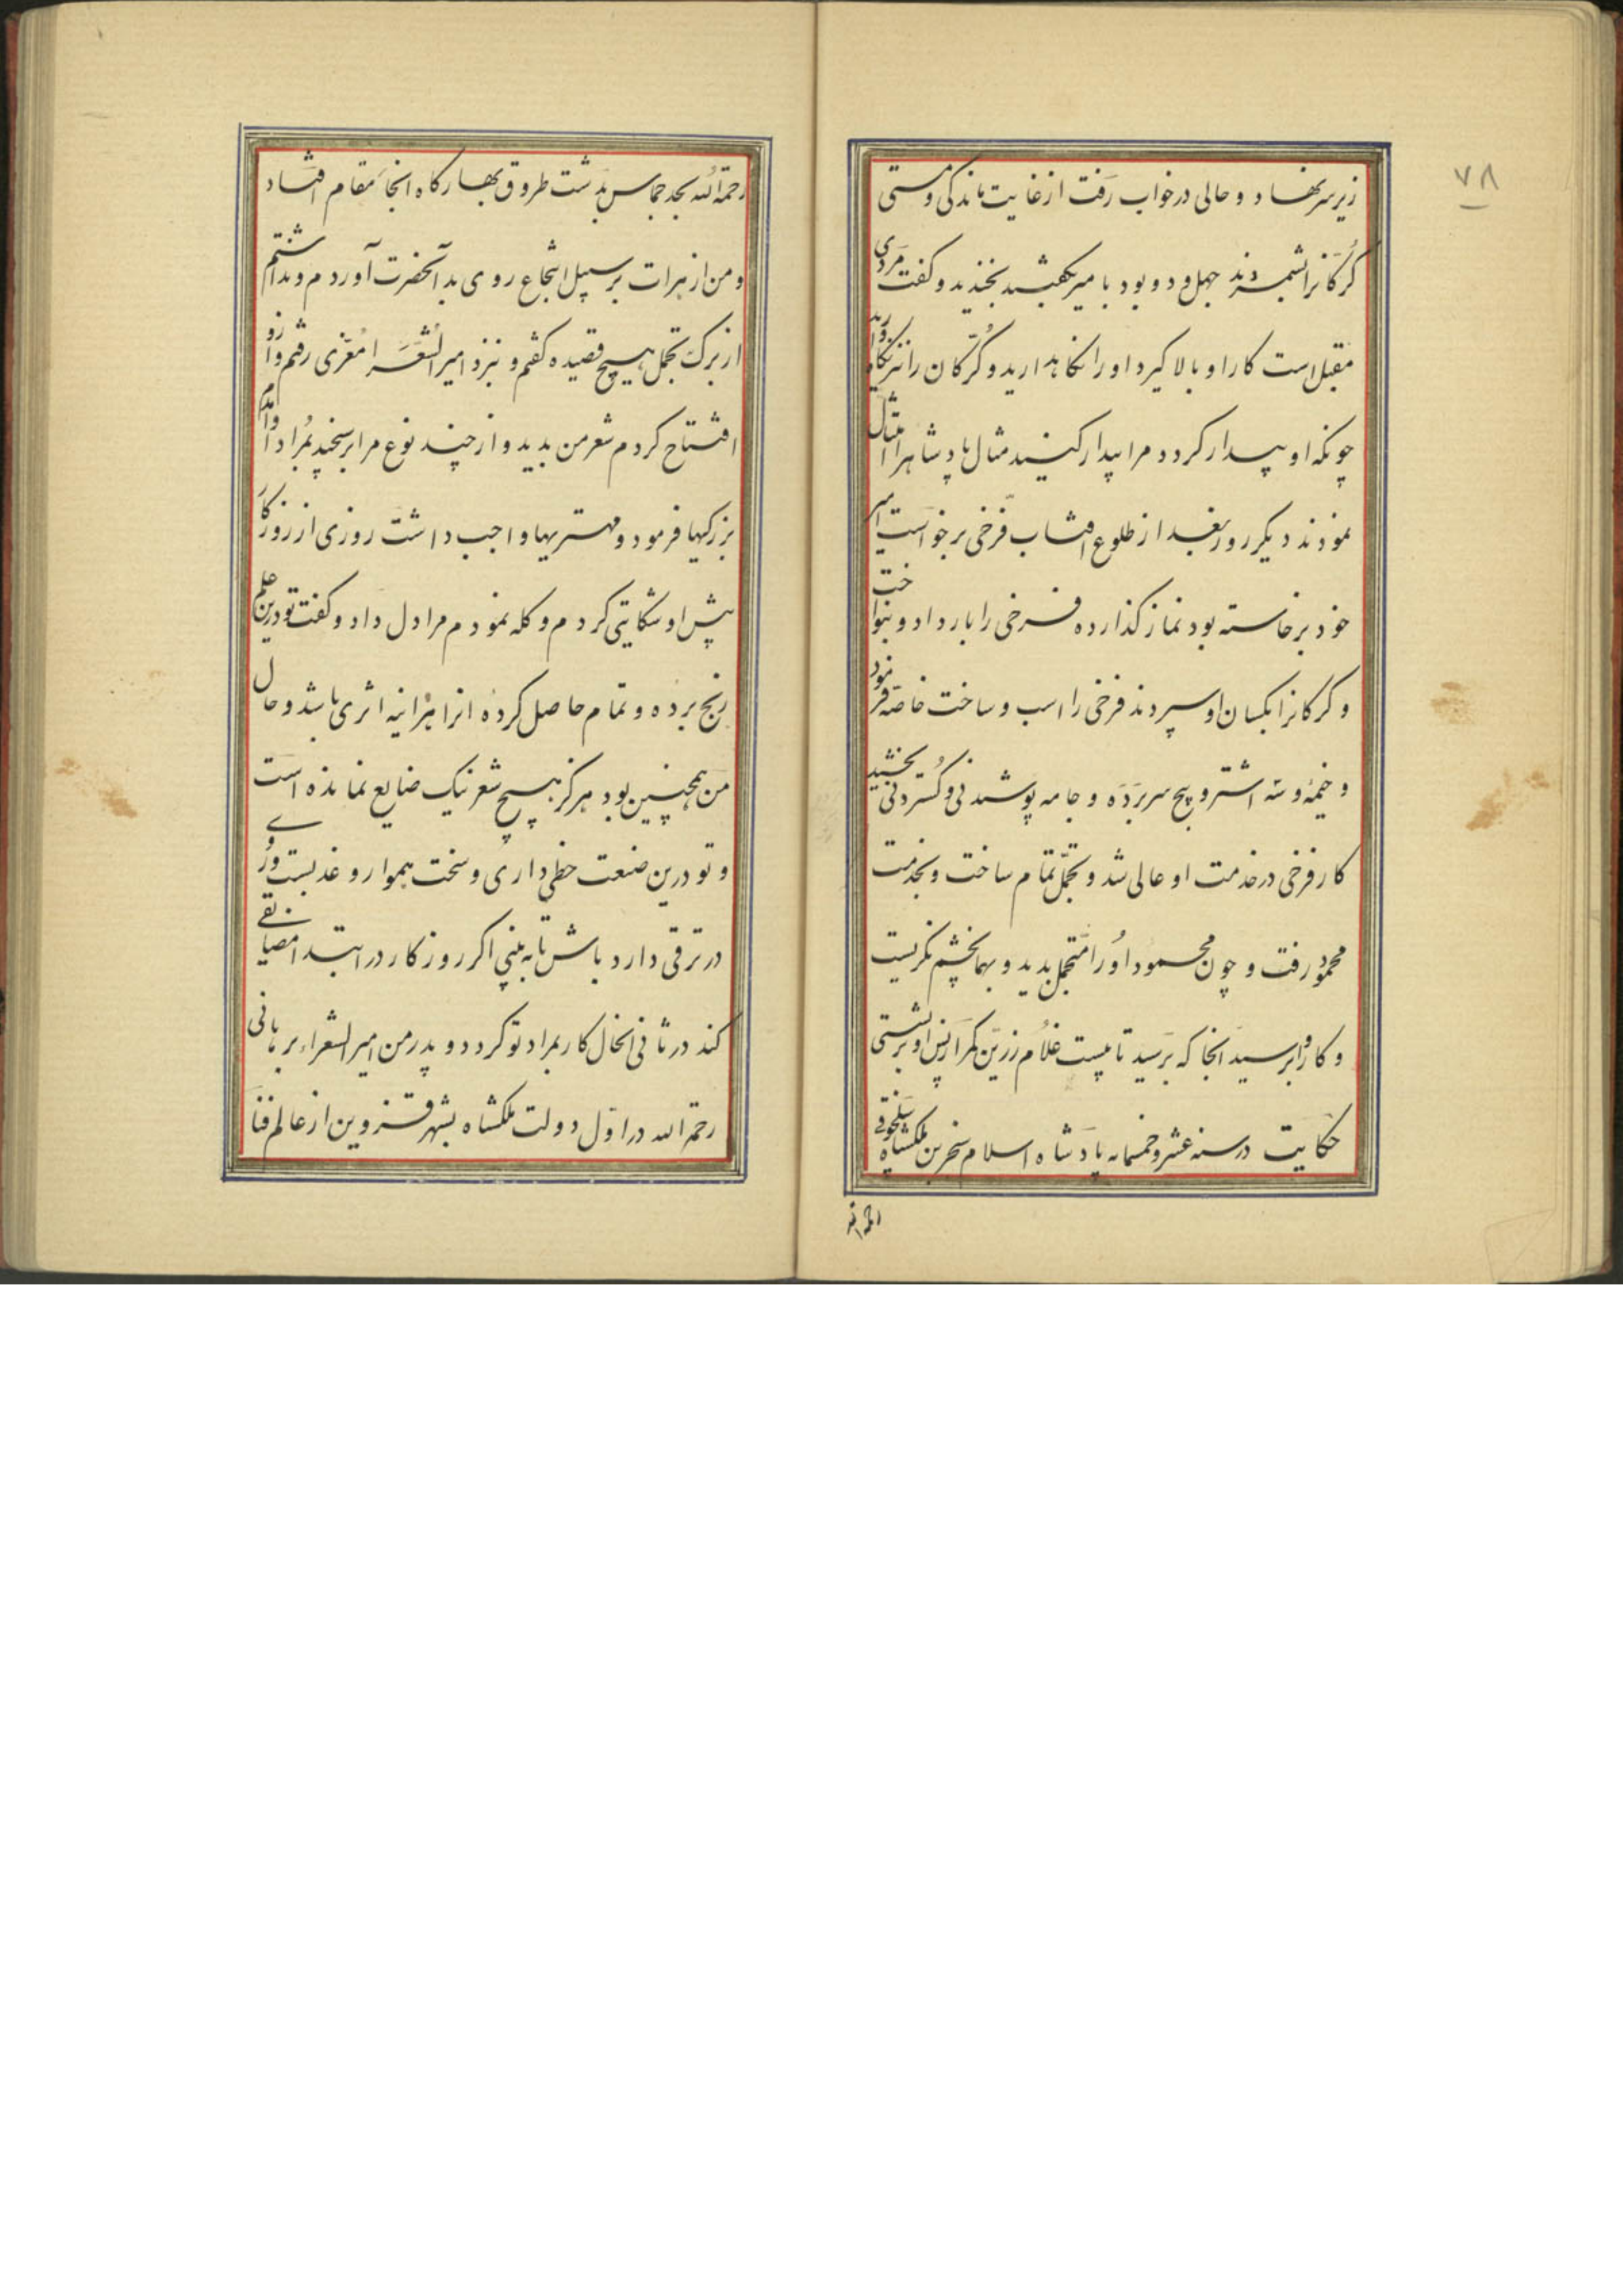 ۷۸
زیر سر نهاد و حالی در خواب رفت از غایت ماندکی و مستی
کرکانرا بشمردند چهل و دو بود با میر بکفتند بخندید و کفت مردی
مقبل است کار او بالا کیرد او را نکاه دارید و کرکان را نیز نکاه دارید
چونکه او بیدار کردد مرا بیدار کنید مثال پادشاه را امتثال
نمودند دیکر روز بعد از طلوع افتاب فرخی برخواست امیر
خود برخاسته بود نماز کذارده فرخی را بار داد و بنواخت
و کرکانرا بکسان او سپردند فرخی را اسب و ساخت خاصه فرمود
و خیمه و سه اشتر و پنج سر برده و جامه پوشیدنی و کستردنی بخشید
کار فرخی در خدمت او عالی شد و تجمل تمام ساخت و بخدمت
محمود رفت و چون محمود او را متجمل بدید و بهمان چشم نکریست
و کار او برسید انجا که برسید تا بیست غلام زرین کمر از پس او برنشستی
حکایت در سنه عشر و خمسمایه پادشاه اسلام سنجر بن ملکشاه سلجوقی
رحمة الله بحد جماس بدشت طروق بهار کاه انجا مقام افتاد
و من از هرات بر سبیل انتجاع روی بد آنحضرت آوردم و نداشتم
از برک تجمل هیچ قصیده کفتم و نزد امیر الشعرا معزی رفتم و از او
افتتاح کردم شعر من بدید و از چند نوع مرا برسنجید بمراد او آمدم
بزرکیها فرمود و مهتریها واجب داشت روزی از روزکار
پیش او شکایتی کردم و کله نمودم مرا دل داد و کفت تو درین علم
رنج برده و تمام حاصل کرده انرا هر اینه اثری باشد و حال
من همچنین بود هرکز هیچ شعر نیک ضایع نمانده است
و تو درین صنعت حظی داری و سخت هموار و عذبست و روی
در ترقی دارد باش تا به بینی اکر روزکار در ابتدا مضایقتی
کند در ثانی الحال کار بمراد تو کردد و پدر من امیر الشعراء برهانی
رحمة الله در اول دولت ملکشاه بشهر قزوین از عالم فنا